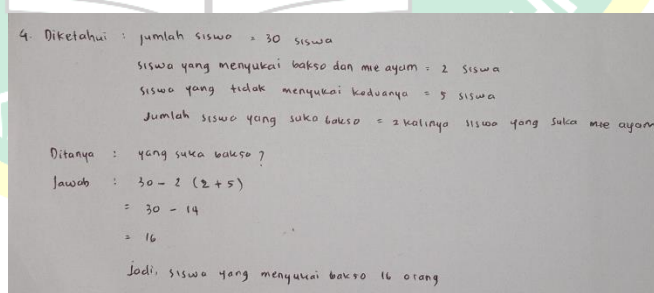 4. Diketahui : jumlah siswa = 30 siswa
siswa yang menyukai bakso dan mie ayam = 2 siswa
siswa yang tidak menyukai keduanya = 5 siswa
Jumlah siswa yang suka bakso = 2 kalinya siswa yang suka mie ayam
Ditanya : yang suka bakso ?
Jawab : 30 - 2 (2 + 5)
= 30 - 14
= 16
Jadi, siswa yang menyukai bakso 16 orang